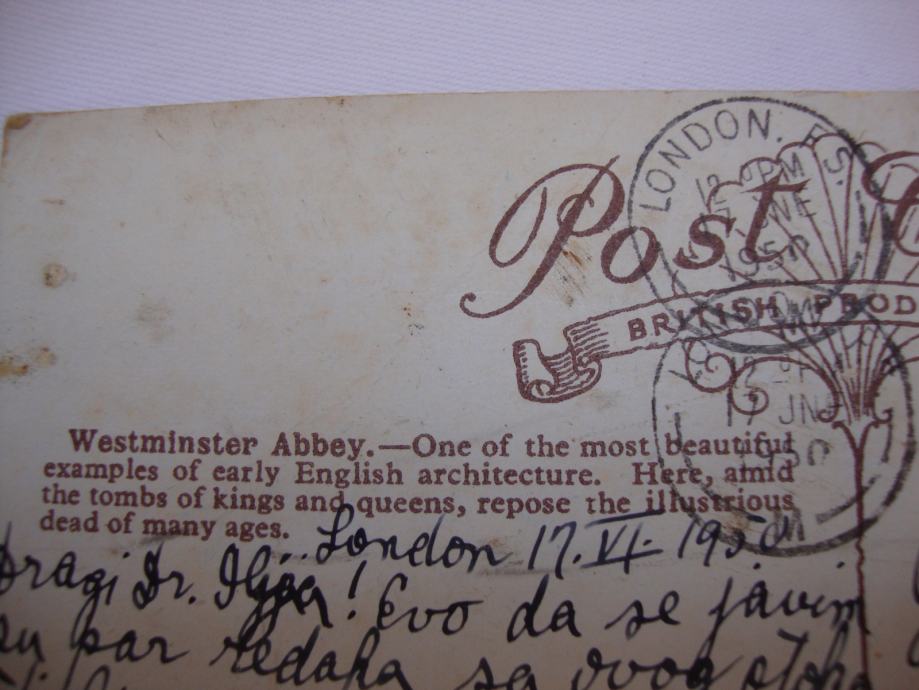 Post
LONDON. F.S.
12 PM
JUNE
1950
BRITISH PROD
17 JNE
Westminster Abbey.—One of the most beautiful
examples of early English architecture. Here, amid
the tombs of kings and queens, repose the illustrious
dead of many ages.
London 17.VI. 1950
Dragi Dr. Ilija! Evo da se javim
par redaka sa ovog otoka